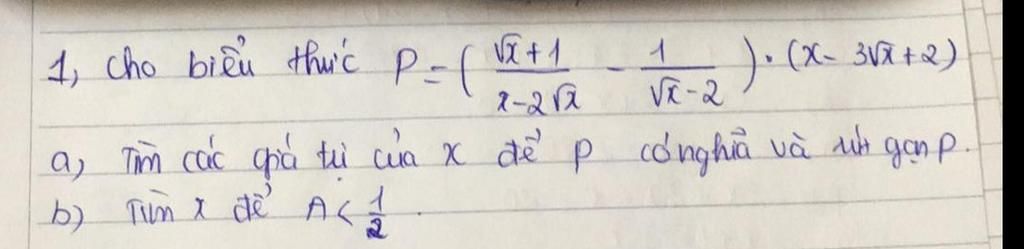 1, Cho biểu thức P = ( \frac{√x + 1}{x - 2√x} - \frac{1}{√x - 2} ) . (x - 3√x + 2)
a) Tìm các giá trị của x để P có nghĩa và rút gọn P.
b) Tìm x để A < \frac{1}{2} .